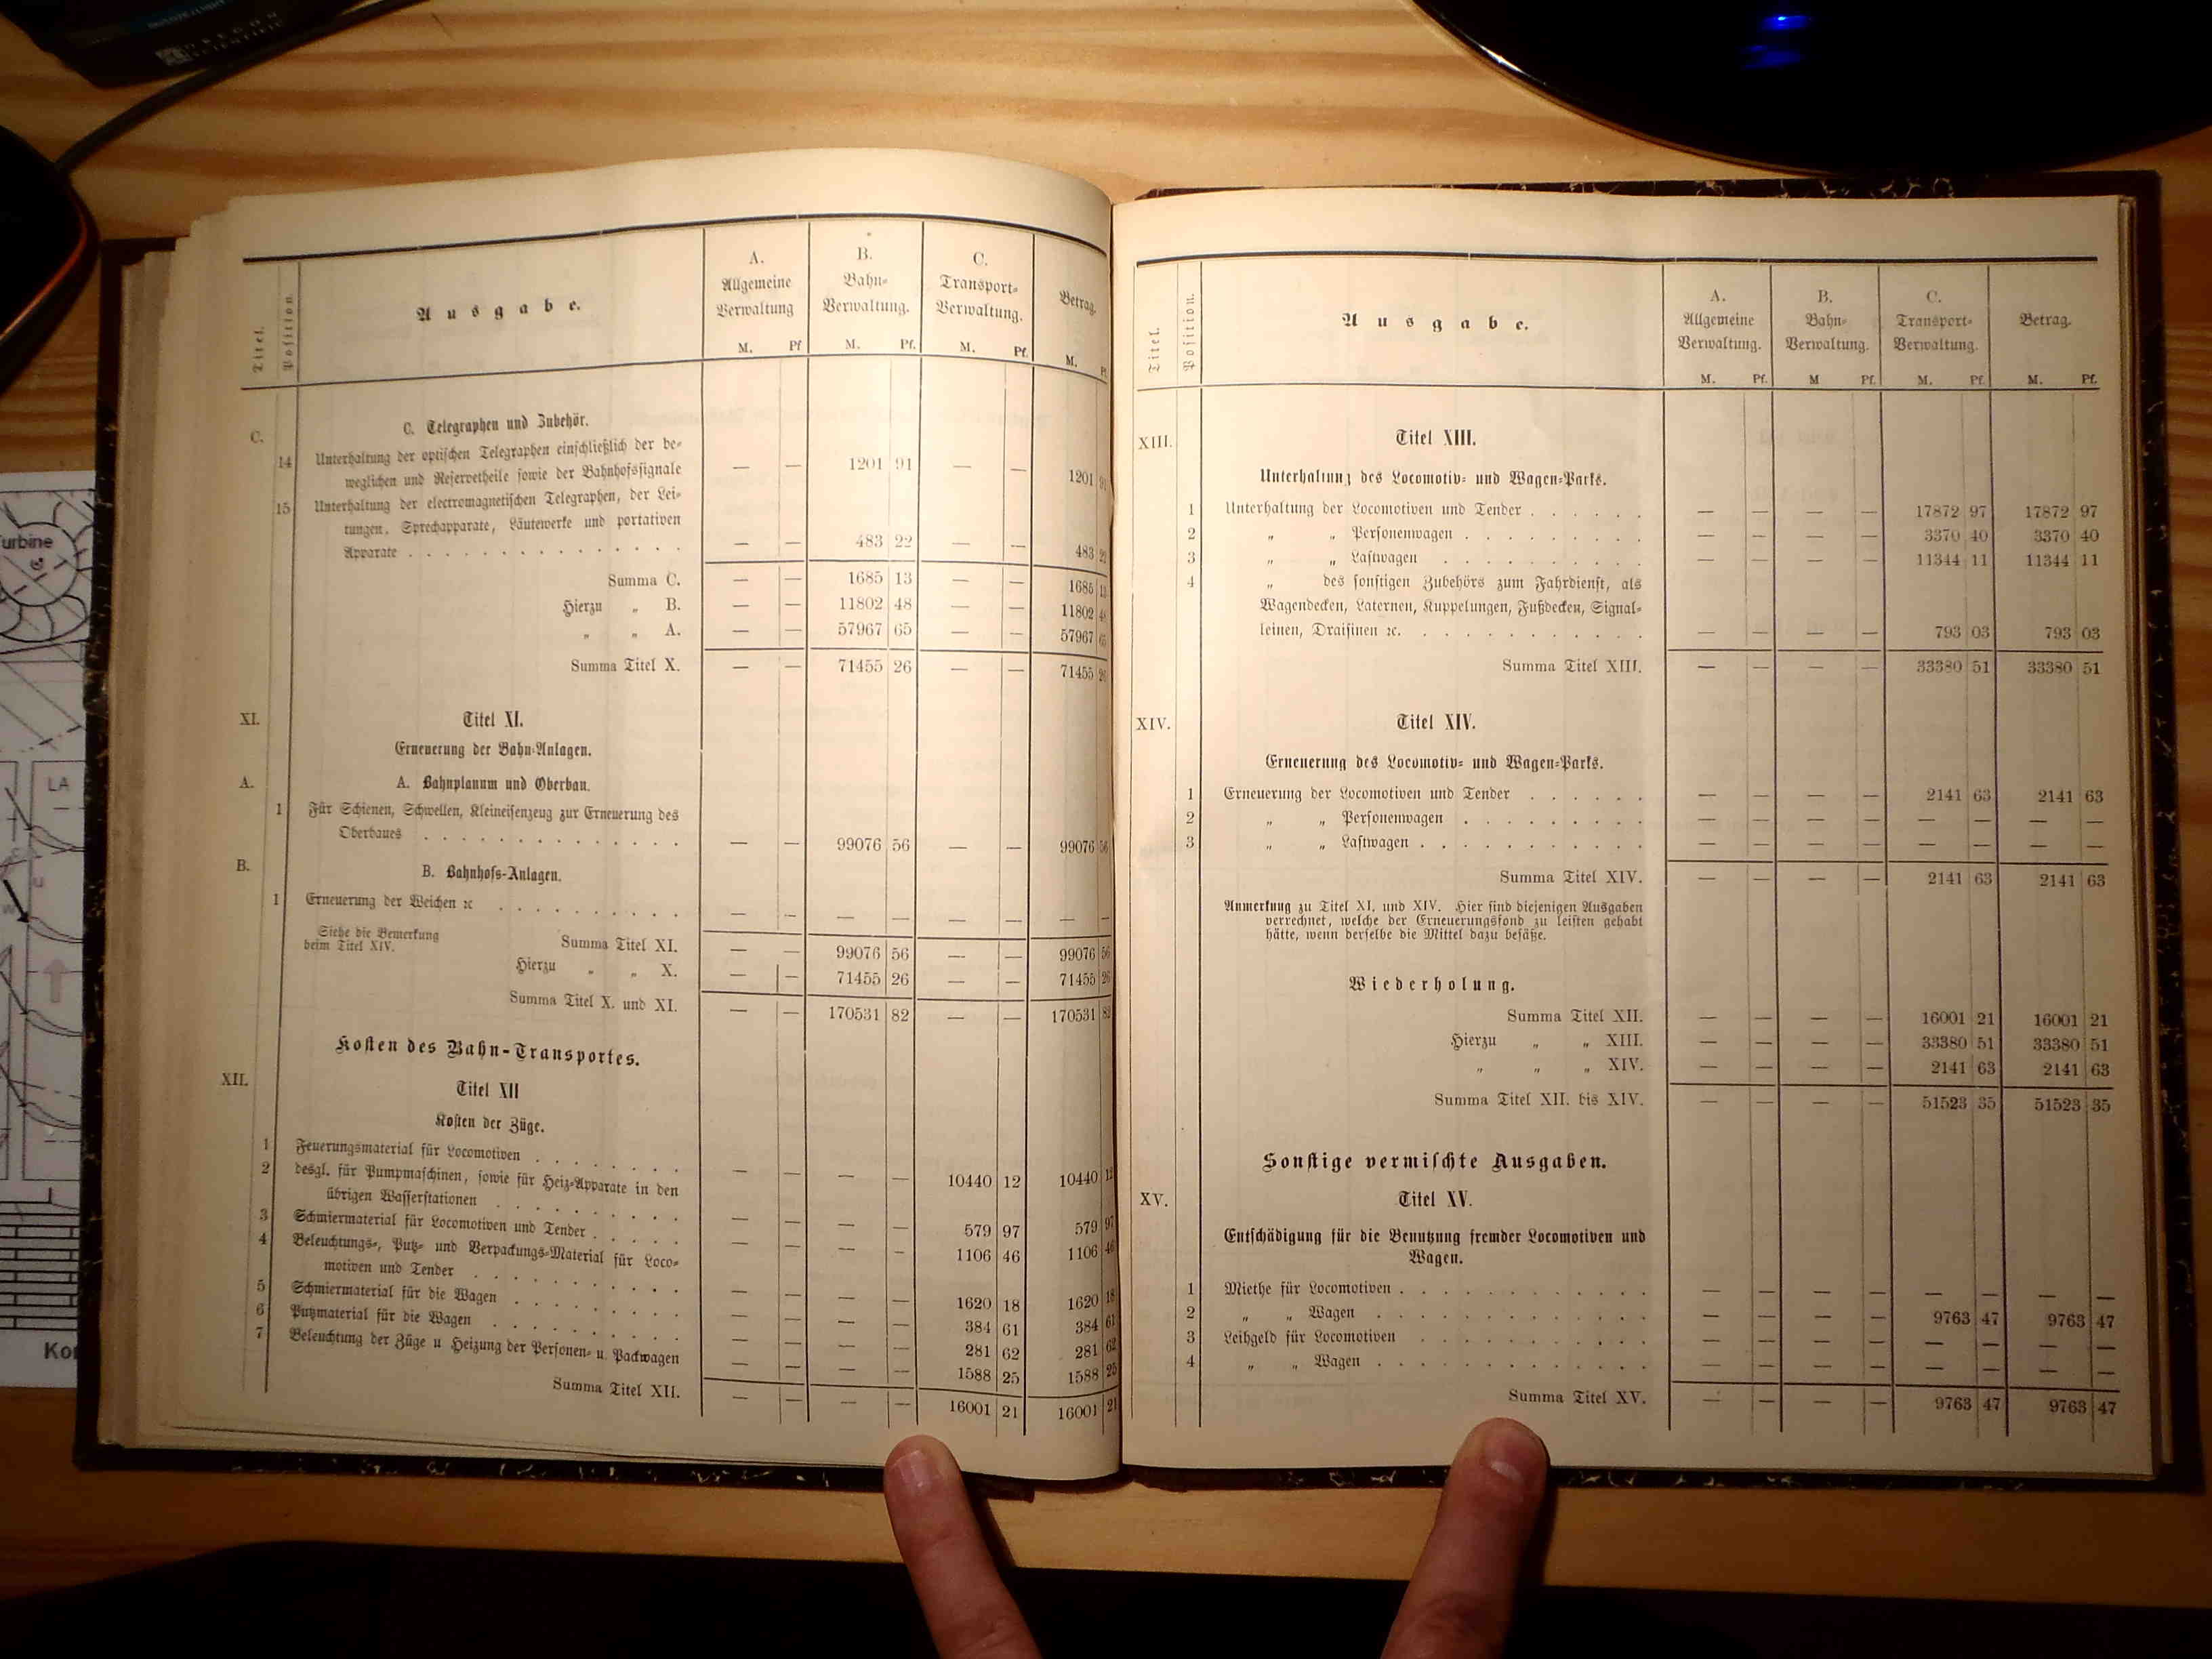 urbine
LA
Kon
Ausgabe.
Titel.
Position.
A.
Allgemeine
Verwaltung
M. Pf
B.
Bahn-
Verwaltung.
M. Pf.
C.
Transport-
Verwaltung.
M. Pf.
Betrag.
M. Pf
C. Telegraphen und Zubehör.
C.
14 Unterhaltung der optischen Telegraphen einschließlich der be-
weglichen und Reservetheile sowie der Bahnhofssignale — — 1201 91 — — 1201 91
15 Unterhaltung der electromagnetischen Telegraphen, der Lei-
tungen, Sprechapparate, Läutewerke und portativen
Apparate . . . . . . . . . . . . . — — 483 22 — — 483 22
Summa C. — — 1685 13 — — 1685 13
Hierzu „ B. — — 11802 48 — — 11802 48
„ „ A. — — 57967 65 — — 57967 65
Summa Titel X. — — 71455 26 — — 71455 26
XI. Titel XI.
Erneuerung der Bahn-Anlagen.
A. A. Bahnplanum und Oberbau.
1 Für Schienen, Schwellen, Kleineisenzeug zur Erneuerung des
Oberbaues . . . . . . . . . . . . — — 99076 56 — — 99076 56
B. B. Bahnhofs-Anlagen.
1 Erneuerung der Weichen ꝛc . . . . . . . . . — — — — — — — —
Siehe die Bemerkung
beim Titel XIV.
Summa Titel XI. — — 99076 56 — — 99076 56
Hierzu „ „ X. — — 71455 26 — — 71455 26
Summa Titel X. und XI. — — 170531 82 — — 170531 82
Kosten des Bahn-Transportes.
XII. Titel XII
Kosten der Züge.
1 Feuerungsmaterial für Locomotiven . . . . . . . — — — — 10440 12 10440 12
2 desgl. für Pumpmaschinen, sowie für Heiz-Apparate in den
übrigen Wasserstationen . . . . . . . . . — — — — 579 97 579 97
3 Schmiermaterial für Locomotiven und Tender . . . . . — — — — 1106 46 1106 46
4 Beleuchtungs-, Putz- und Verpackungs-Material für Loco-
motiven und Tender . . . . . . . . . . — — — — 1620 18 1620 18
5 Schmiermaterial für die Wagen . . . . . . . . — — — — 384 61 384 61
6 Putzmaterial für die Wagen . . . . . . . . . — — — — 281 62 281 62
7 Beleuchtung der Züge u Heizung der Personen- u. Packwagen — — — — 1588 25 1588 25
Summa Titel XII. — — — — 16001 21 16001 21
Titel.
Position.
Ausgabe.
A.
Allgemeine
Verwaltung.
M. Pf.
B.
Bahn-
Verwaltung.
M Pf.
C.
Transport-
Verwaltung.
M. Pf.
Betrag.
M. Pf.
XIII. Titel XIII.
Unterhaltung des Locomotiv- und Wagen-Parks.
1 Unterhaltung der Locomotiven und Tender . . . . . . — — — — 17872 97 17872 97
2 „ „ Personenwagen . . . . . . . . — — — — 3370 40 3370 40
3 „ „ Lastwagen . . . . . . . . . — — — — 11344 11 11344 11
4 „ des sonstigen Zubehörs zum Fahrdienst, als
Wagendecken, Laternen, Kuppelungen, Fußdecken, Signal-
leinen, Draisinen ꝛc. . . . . . . . . . . . — — — — 793 03 793 03
Summa Titel XIII. — — — — 33380 51 33380 51
XIV. Titel XIV.
Erneuerung des Locomotiv- und Wagen-Parks.
1 Erneuerung der Locomotiven und Tender . . . . . . — — — — 2141 63 2141 63
2 „ „ Personenwagen . . . . . . . . — — — — — — — —
3 „ „ Lastwagen . . . . . . . . . . — — — — — — — —
Summa Titel XIV. — — — — 2141 63 2141 63
Anmerkung zu Titel XI. und XIV. Hier sind diejenigen Ausgaben
verrechnet, welche der Erneuerungsfond zu leisten gehabt
hätte, wenn derselbe die Mittel dazu besäße.
Wiederholung.
Summa Titel XII. — — — — 16001 21 16001 21
Hierzu „ „ XIII. — — — — 33380 51 33380 51
„ „ „ XIV. — — — — 2141 63 2141 63
Summa Titel XII. bis XIV. — — — — 51523 35 51523 35
Sonstige vermischte Ausgaben.
XV. Titel XV.
Entschädigung für die Benutzung fremder Locomotiven und
Wagen.
1 Miethe für Locomotiven . . . . . . . . . . . — — — — — — — —
2 „ „ Wagen . . . . . . . . . . . . — — — — 9763 47 9763 47
3 Leihgeld für Locomotiven . . . . . . . . . . — — — — — — — —
4 „ „ Wagen . . . . . . . . . . . . — — — — — — — —
Summa Titel XV. — — — — 9763 47 9763 47